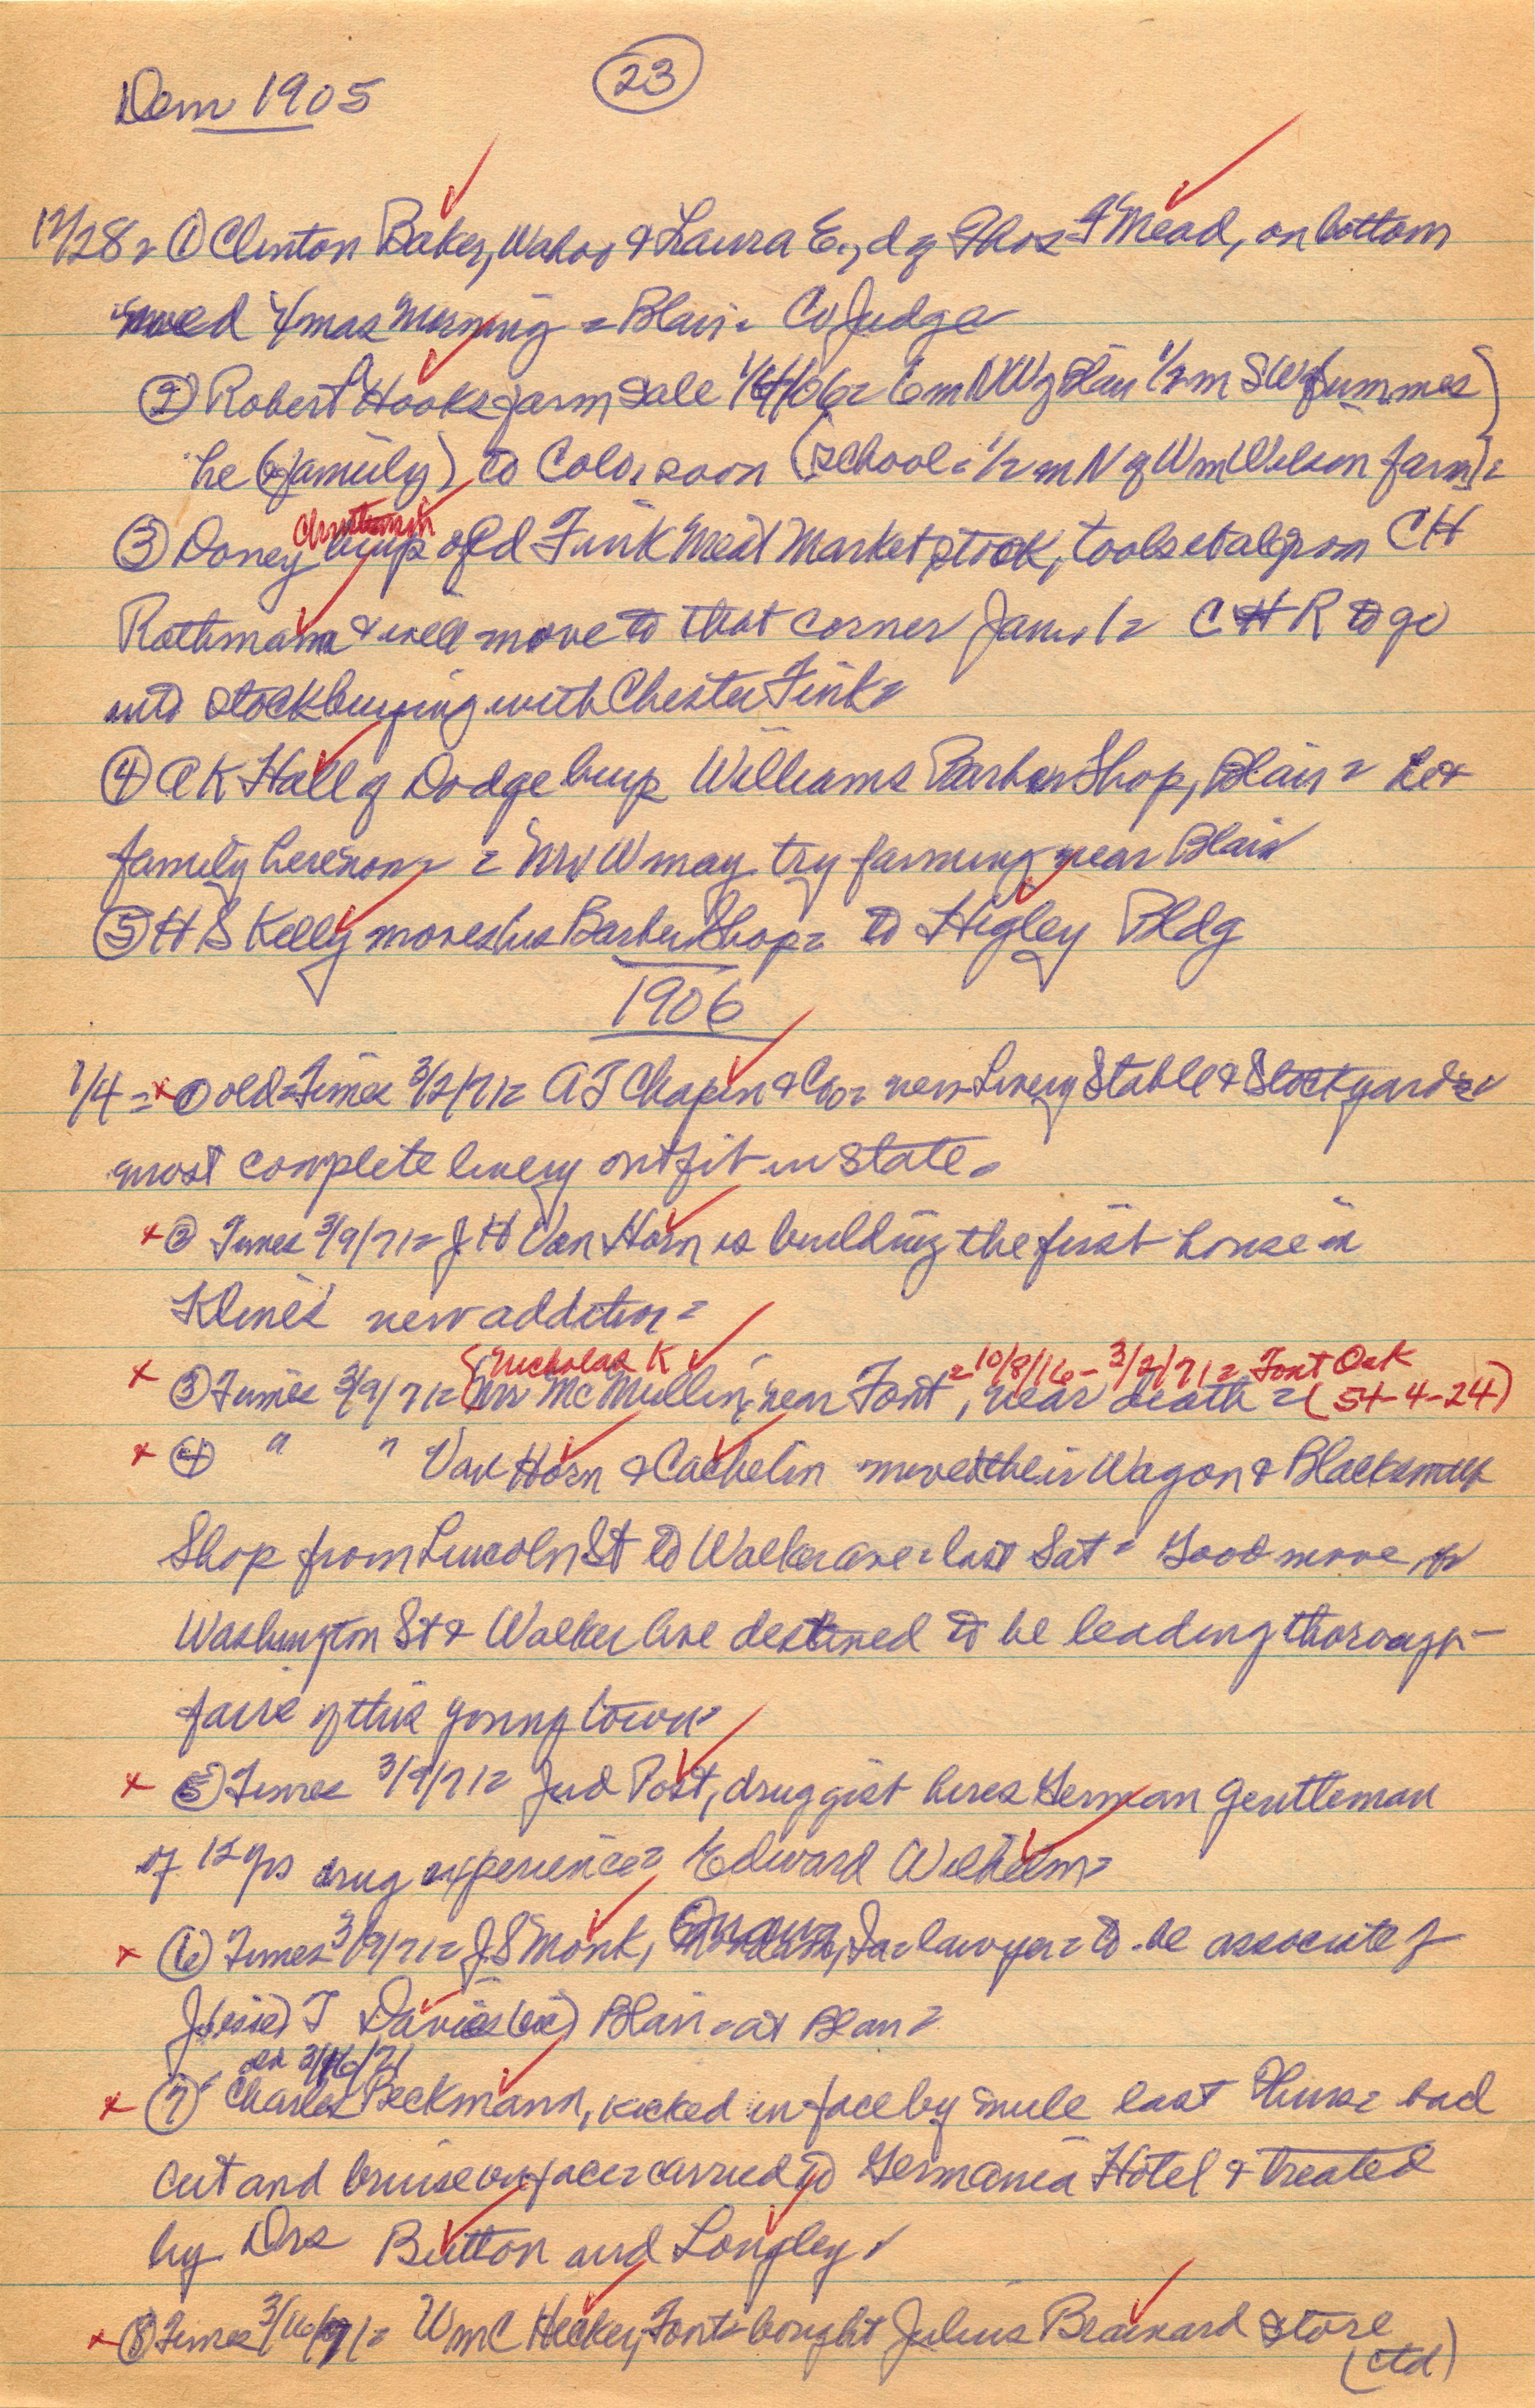 23
Dem 1905
12/28 = ① Clinton Baker, Wahoo & Laura E., d of Thos F Mead, on bottom
wed Xmas morning = Blair = Co Judge
② Robert A Hooks farm sale 1/4/06 = 6 m NW of Blair 1/2 m SW of Fummes
he (& family) to Colo. soon (school = 1/2 m N of Wm Wilson farm) =
Christensen
③ Doney buys old Fink Meat Market stock, tools et al from CH
Rathmann & will move to that corner Jan. 1 = C H R to go
into stockbuying with Chester Fink =
④ A K Hall of Dodge buys Williams Barber Shop, Blair = he &
family here now = Mr W may try farming near Blair
⑤ H S Kelly moves his Barber Shop = to Higley Bldg
1906
1/4 = x ① old = Times 3/2/71 = A J Chapin & Co = new Livery Stable & Stockyards =
most complete livery outfit in state =
x ② Times 3/9/71 = J H Van Horn is building the first house in
Kline's new addition =
Nicholas K = 10/8/16 - 3/2/71 = Font Oak
x ③ Times 3/9/71 = (Mr McMullin, near Font, near death = (54-4-24)
x ④ " " Van Horn & Cachelin moved their Wagon & Blacksmith
Shop from Lincoln St to Walker ave = last Sat = Good move, as
Washington St & Walker Ave destined to be leading thorough-
fares of this young town =
x ⑤ Times 3/9/71 = Jud Post, druggist hires German gentleman
of 12 yrs drug experience = Edward Wilhelm =
x ⑥ Times 3/9/71 = J S Monk, Onawa, Ia = lawyer = to be associate of
J(esse) T Davis (sic) Blair = at Blair =
on 3/16/71
x ⑦ Charles Beckmann, kicked in face by mule last Thurs = bad
cut and bruise on face = carried to Germania Hotel & treated
by Drs Britton and Longley =
x ⑧ Times 3/16/71 = Wm C Hecker, Font = bought Julius Brainard store
(ctd)